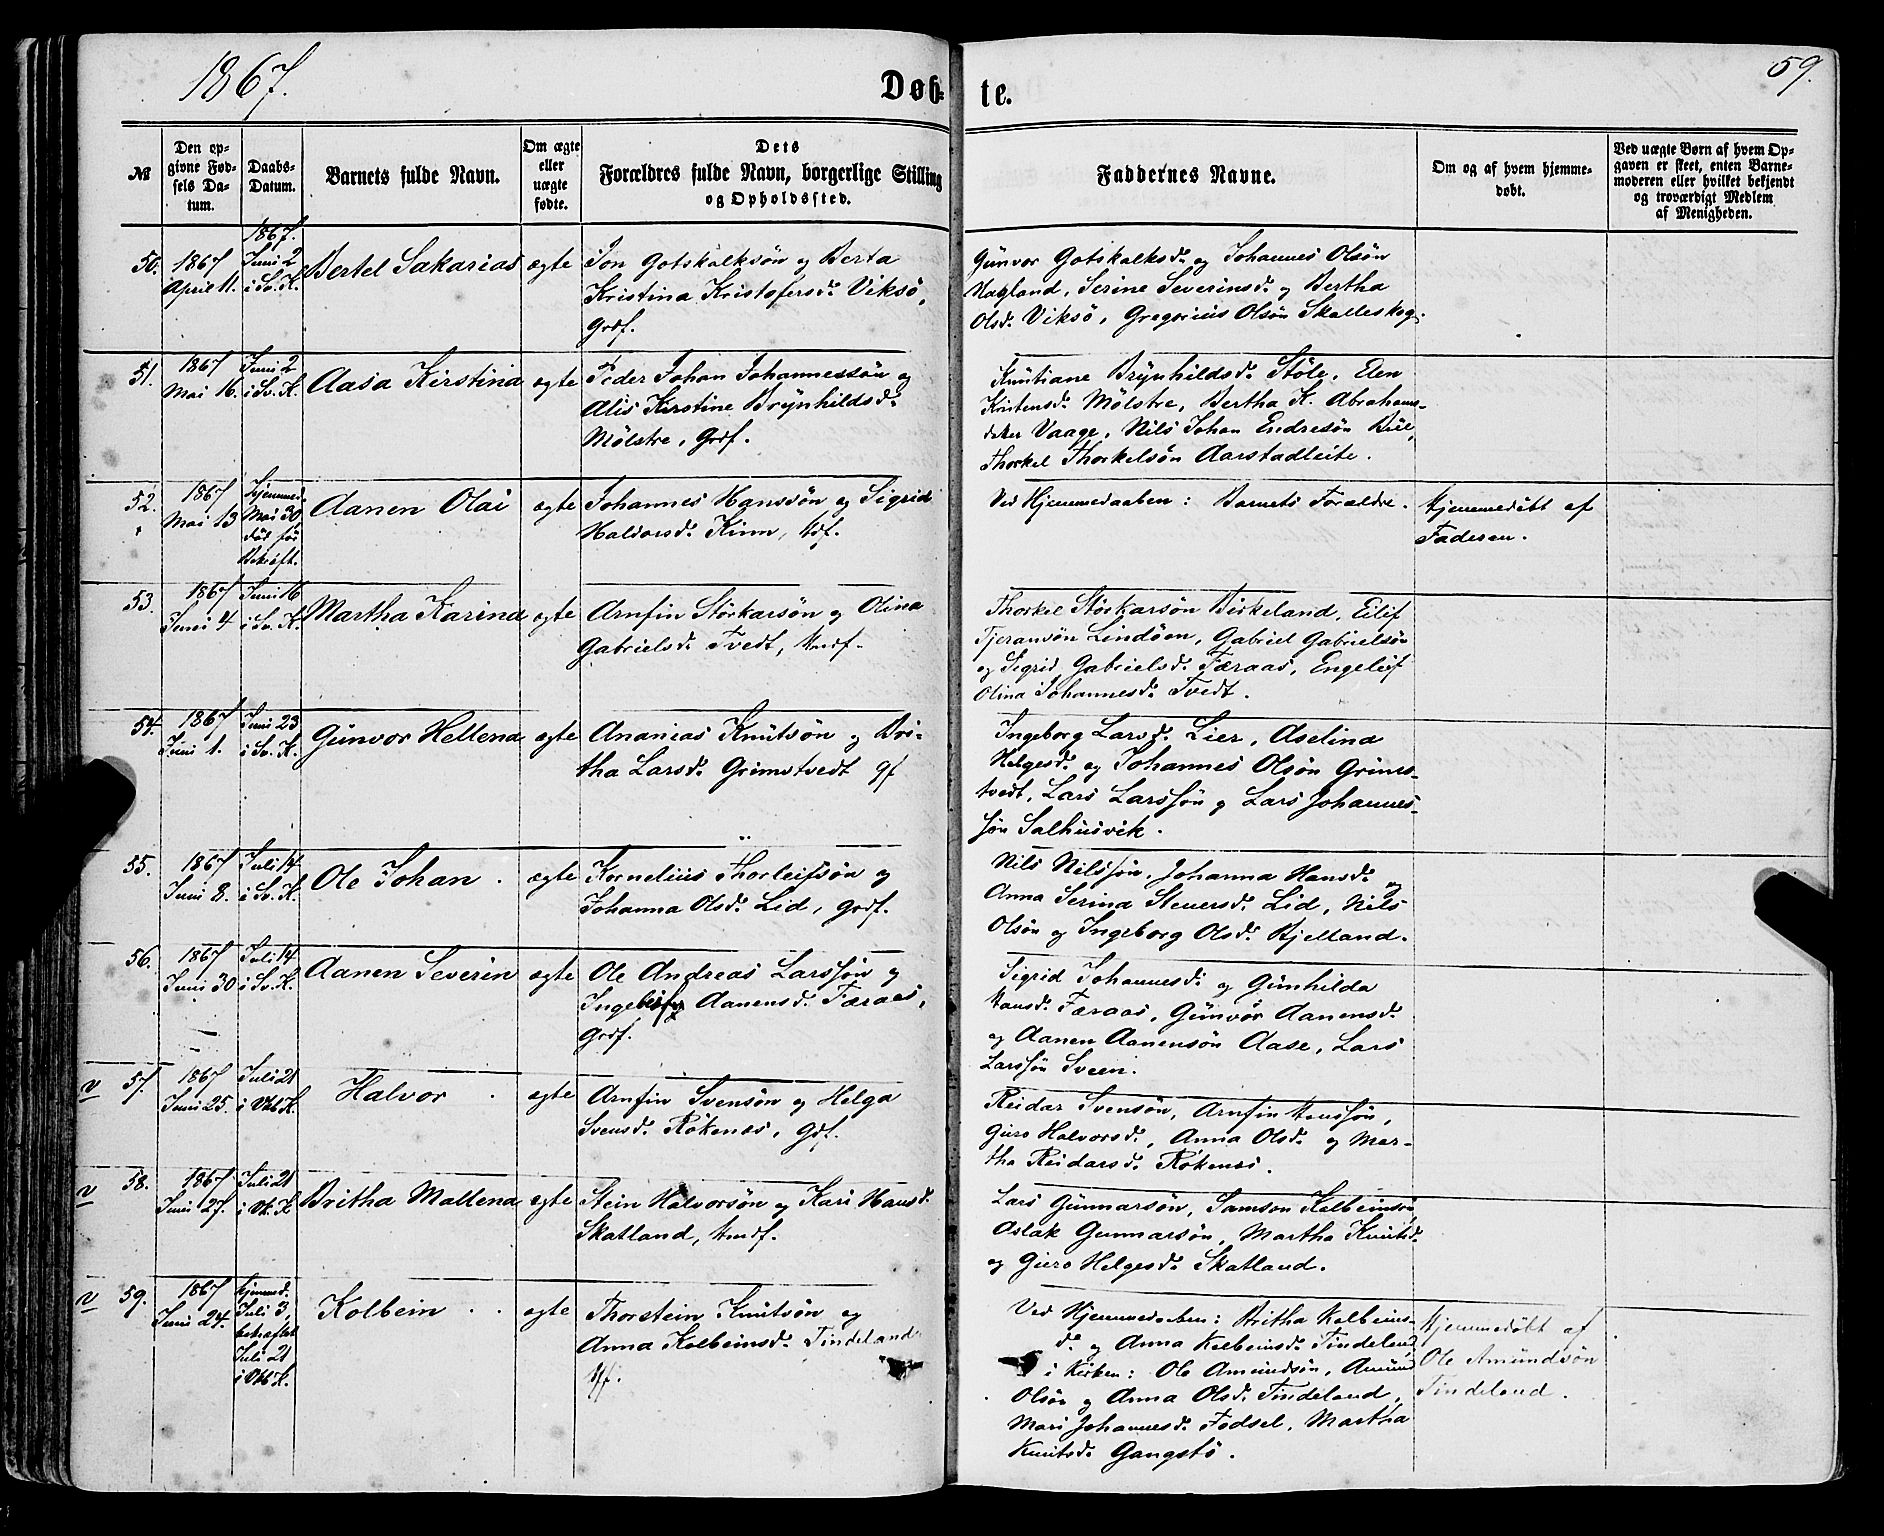 1867.
Døb-
te.
59.
№
Den op-
givne Fød-
sels Da-
tum.
Daabs-
Datum.
Barnets fulde Navn.
Om ægte
eller
uægte
fødte.
Dets
Forældres fulde Navn, borgerlige Stilling
og Opholdssted.
Faddernes Navne.
Om og af hvem hjemme-
døbt.
Ved uægte Børn af hvem Op-
gaven er skeet, enten Barne-
moderen eller hvilket bekjendt
og troværdigt Medlem
af Menigheden.
50.
1867
April 11.
1867.
Juni 2
i Sv. K.
Bertel Sakarias
ægte
Jon Gotskalksøn og Berta
Kristina Kristofersd. Viksø,
Grdf.
Gunvor Gotskalksd. og Johannes Olsøn
Hagland, Serine Severinsd. og Bertha
Olsd. Viksø, Gregorius Olsøn Skalleskog.
51.
1867
Mai 16.
Juni 2
i Sv. K.
Aasa Kirstina
ægte
Peder Johan Johannessøn og
Alis Kirstine Brynhildsd.
Mølstre, Grdf.
Knutiane Brynhildsd. Støle, Elen
Kristensd. Mølstre, Bertha K. Abrahams-
datter Vaage, Nils Johan Endresøn Bue,
Thorkel Thorkelsøn Aarstadleite.
52.
1867
Mai 13
Hjemmed.
Mai 30
død før
Bekræft.
Aanen Olai
ægte
Johannes Hanssøn og Sigrid
Haldorsd. Kinn, Hdf.
Ved Hjemmedaaben: Barnets Forældre.
Hjemmedøbt af
Faderen.
53.
1867
Juni 4
Juni 16
i Sv. K.
Martha Karina
ægte
Arnfin Størkarsøn og Olina
Gabrielsd. Tvedt, Hmdf.
Thorkel Størkarsøn Birkeland, Eilif
Tjeransøn Lindøen, Gabriel Gabrielsøn
og Sigrid Gabrielsd. Færaas, Engeleif
Olina Johannesd. Tvedt.
54.
1867
Juni 1.
Juni 23
i Sv. K.
Gunvor Hellena
ægte
Ananias Knutsøn og Bri-
tha Larsd. Grimstvedt gf
Ingeborg Larsd. Lier, Aselina
Helgesd. og Johannes Olsøn Grims-
tvedt, Lars Larssøn og Lars Johannes-
søn Salhusvik.
55.
1867
Juni 8.
Juli 14
i Sv. K.
Ole Johan.
ægte
Kornelius Thorleifsøn og
Johanna Olsd. Lid, Grdf.
Nils Nilssøn, Johanna Hansd. og
Anna Serina Steuersd. Lid, Nils
Olsøn og Ingeborg Olsd. Bjelland.
56.
1867
Juni 30
Juli 14
i Sv. K.
Aanen Severin
ægte
Ole Andreas Larssøn og
Ingeborg Aanensd. Færaas,
Grdf.
Sigrid Johannesd. og Gunhilda
Hansd. Færaas, Gunvor Aanensd.
og Aanen Aanensøn Aase, Lars
Larssøn Sveen.
v
57.
1867
Juni 25.
Juli 21
i Vtb K.
Halvor.
ægte
Arnfin Svensøn og Helga
Svensd. Røkenes, Gdf.
Reidar Svensøn, Arnfin Hanssøn,
Guro Halvorsd., Anna Olsd. og Mar-
tha Reidarsd. Røkenes.
v
58.
1867
Juni 27.
Juli 21
i Vt. K
Britha Mallena
ægte
Stein Halvorsøn og Kari Hansd.
Skatland, Hmdf.
Lars Gunnarsøn, Samson Kolbeinsøn
Aslak Gunnarsøn, Martha Knutsd.
og Guro Helgesd. Skatland.
v
59.
1867
Juni 24.
Hjemmed.
Juli 3,
bekræftet
Juli 21
i Vtb K.
Kolbein..
ægte
Thorstein Knutsøn og
Anna Kolbeinsd. Tindeland
Ved Hjemmedaaben: Britha Kolbeins-
d. og Anna Kolbeinsd. Tindeland
i Kirken: Ole Amundsøn, Amund
Olsøn og Anna Olsd. Tindeland,
Mari Johannesd. Fodsel, Martha
Knutsd. Gangstø.
Hjemmedøbt af
Ole Amundsøn
Tindeland.